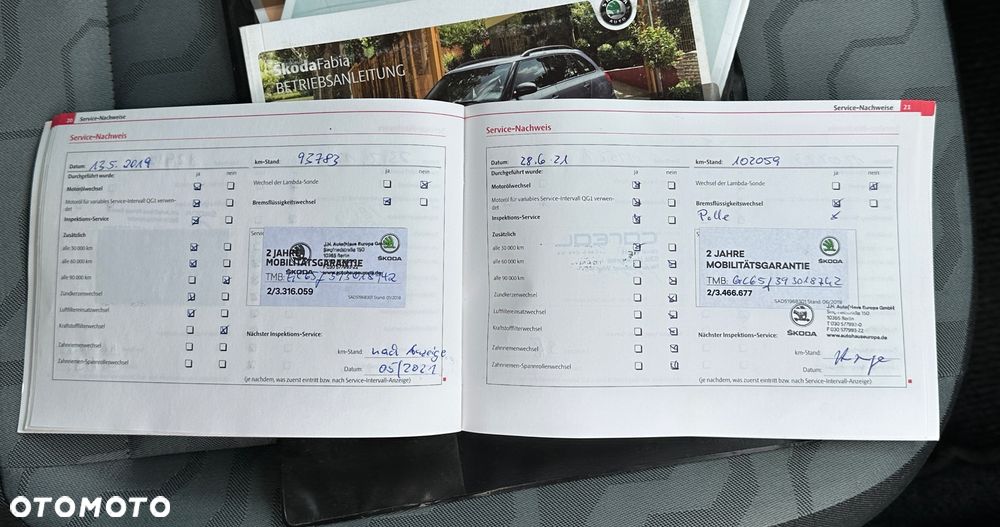 ŠkodaFabia
BETRIEBSANLEITUNG
ŠKODA
AUTO
20 Service-Nachweise
Service-Nachweis
Datum: 13.5.2019 km-Stand: 93783
Durchgeführt wurde: ja nein ja nein
Motorölwechsel
Wechsel der Lambda-Sonde
Motoröl für variables Service-Intervall QG1 verwen-
det
Bremsflüssigkeitswechsel
Inspektions-Service
Zusätzlich
alle 30 000 km
alle 60 000 km
alle 90 000 km
Zündkerzenwechsel
Luftfiltereinsatzwechsel
Kraftstofffilterwechsel
Zahnriemenwechsel
Zahnriemen-Spannrollenwechsel
2 JAHRE
MOBILITÄTSGARANTIE
ŠKODA
TMB:
2/3.316.059
J.H. Autohaus Europa GmbH
Siegfriedstraße 150
10365 Berlin
ŠKODA
Nächster Inspektions-Service:
km-Stand: nach Anzeige
Datum: 05/2021
(je nachdem, was zuerst eintritt bzw. nach Service-Intervall-Anzeige)
Service-Nachweise 21
Service-Nachweis
Datum: 28.6.21 km-Stand: 102059
Durchgeführt wurde: ja nein ja nein
Motorölwechsel
Wechsel der Lambda-Sonde
Motoröl für variables Service-Intervall QG1 verwen-
det
Bremsflüssigkeitswechsel
Inspektions-Service
Zusätzlich
alle 30 000 km
alle 60 000 km
alle 90 000 km
Zündkerzenwechsel
Luftfiltereinsatzwechsel
Kraftstofffilterwechsel
Zahnriemenwechsel
Zahnriemen-Spannrollenwechsel
2 JAHRE
MOBILITÄTSGARANTIE
ŠKODA
TMB:
2/3.466.677
J.H. Autohaus Europa GmbH
Siegfriedstraße 150
10365 Berlin
T 030 577993-0
F 030 577993-22
www.autohauseuropa.de
ŠKODA
Nächster Inspektions-Service:
km-Stand:
Datum:
(je nachdem, was zuerst eintritt bzw. nach Service-Intervall-Anzeige)
OTOMOTO